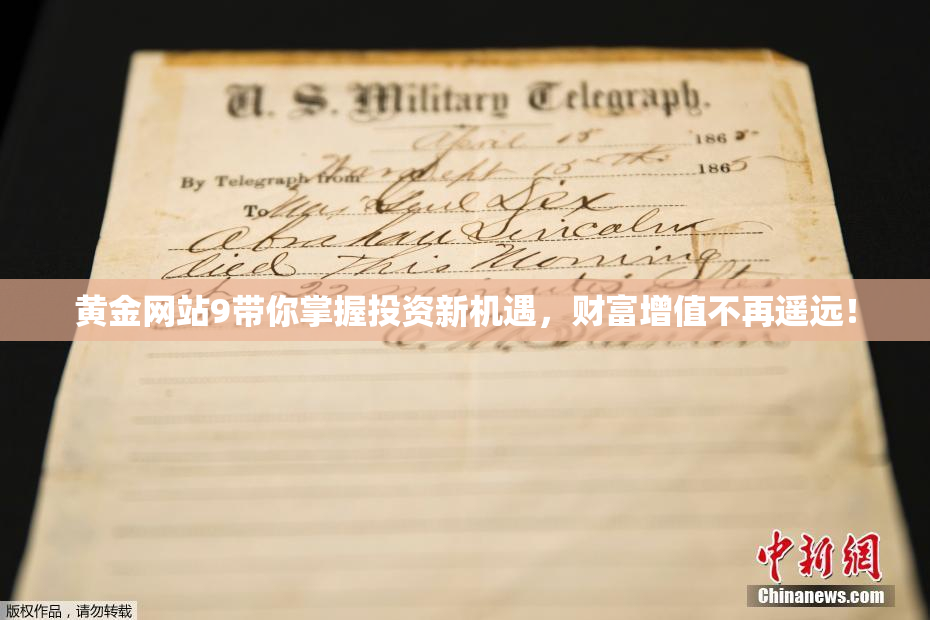 U. S. Military Telegraph.
April 15 1865
By Telegraph from War Dept 15th 1865
To Maj Genl Dix
Abraham Lincoln
died This Morning
at 22 minutes after
黄金网站9带你掌握投资新机遇，财富增值不再遥远！
E. M. Stanton
中新网
Chinanews.com
版权作品，请勿转载